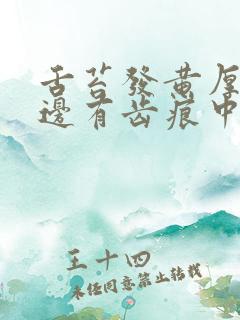 舌苔發黃厚
邊有齿痕中
王十四
未经同意禁止转载